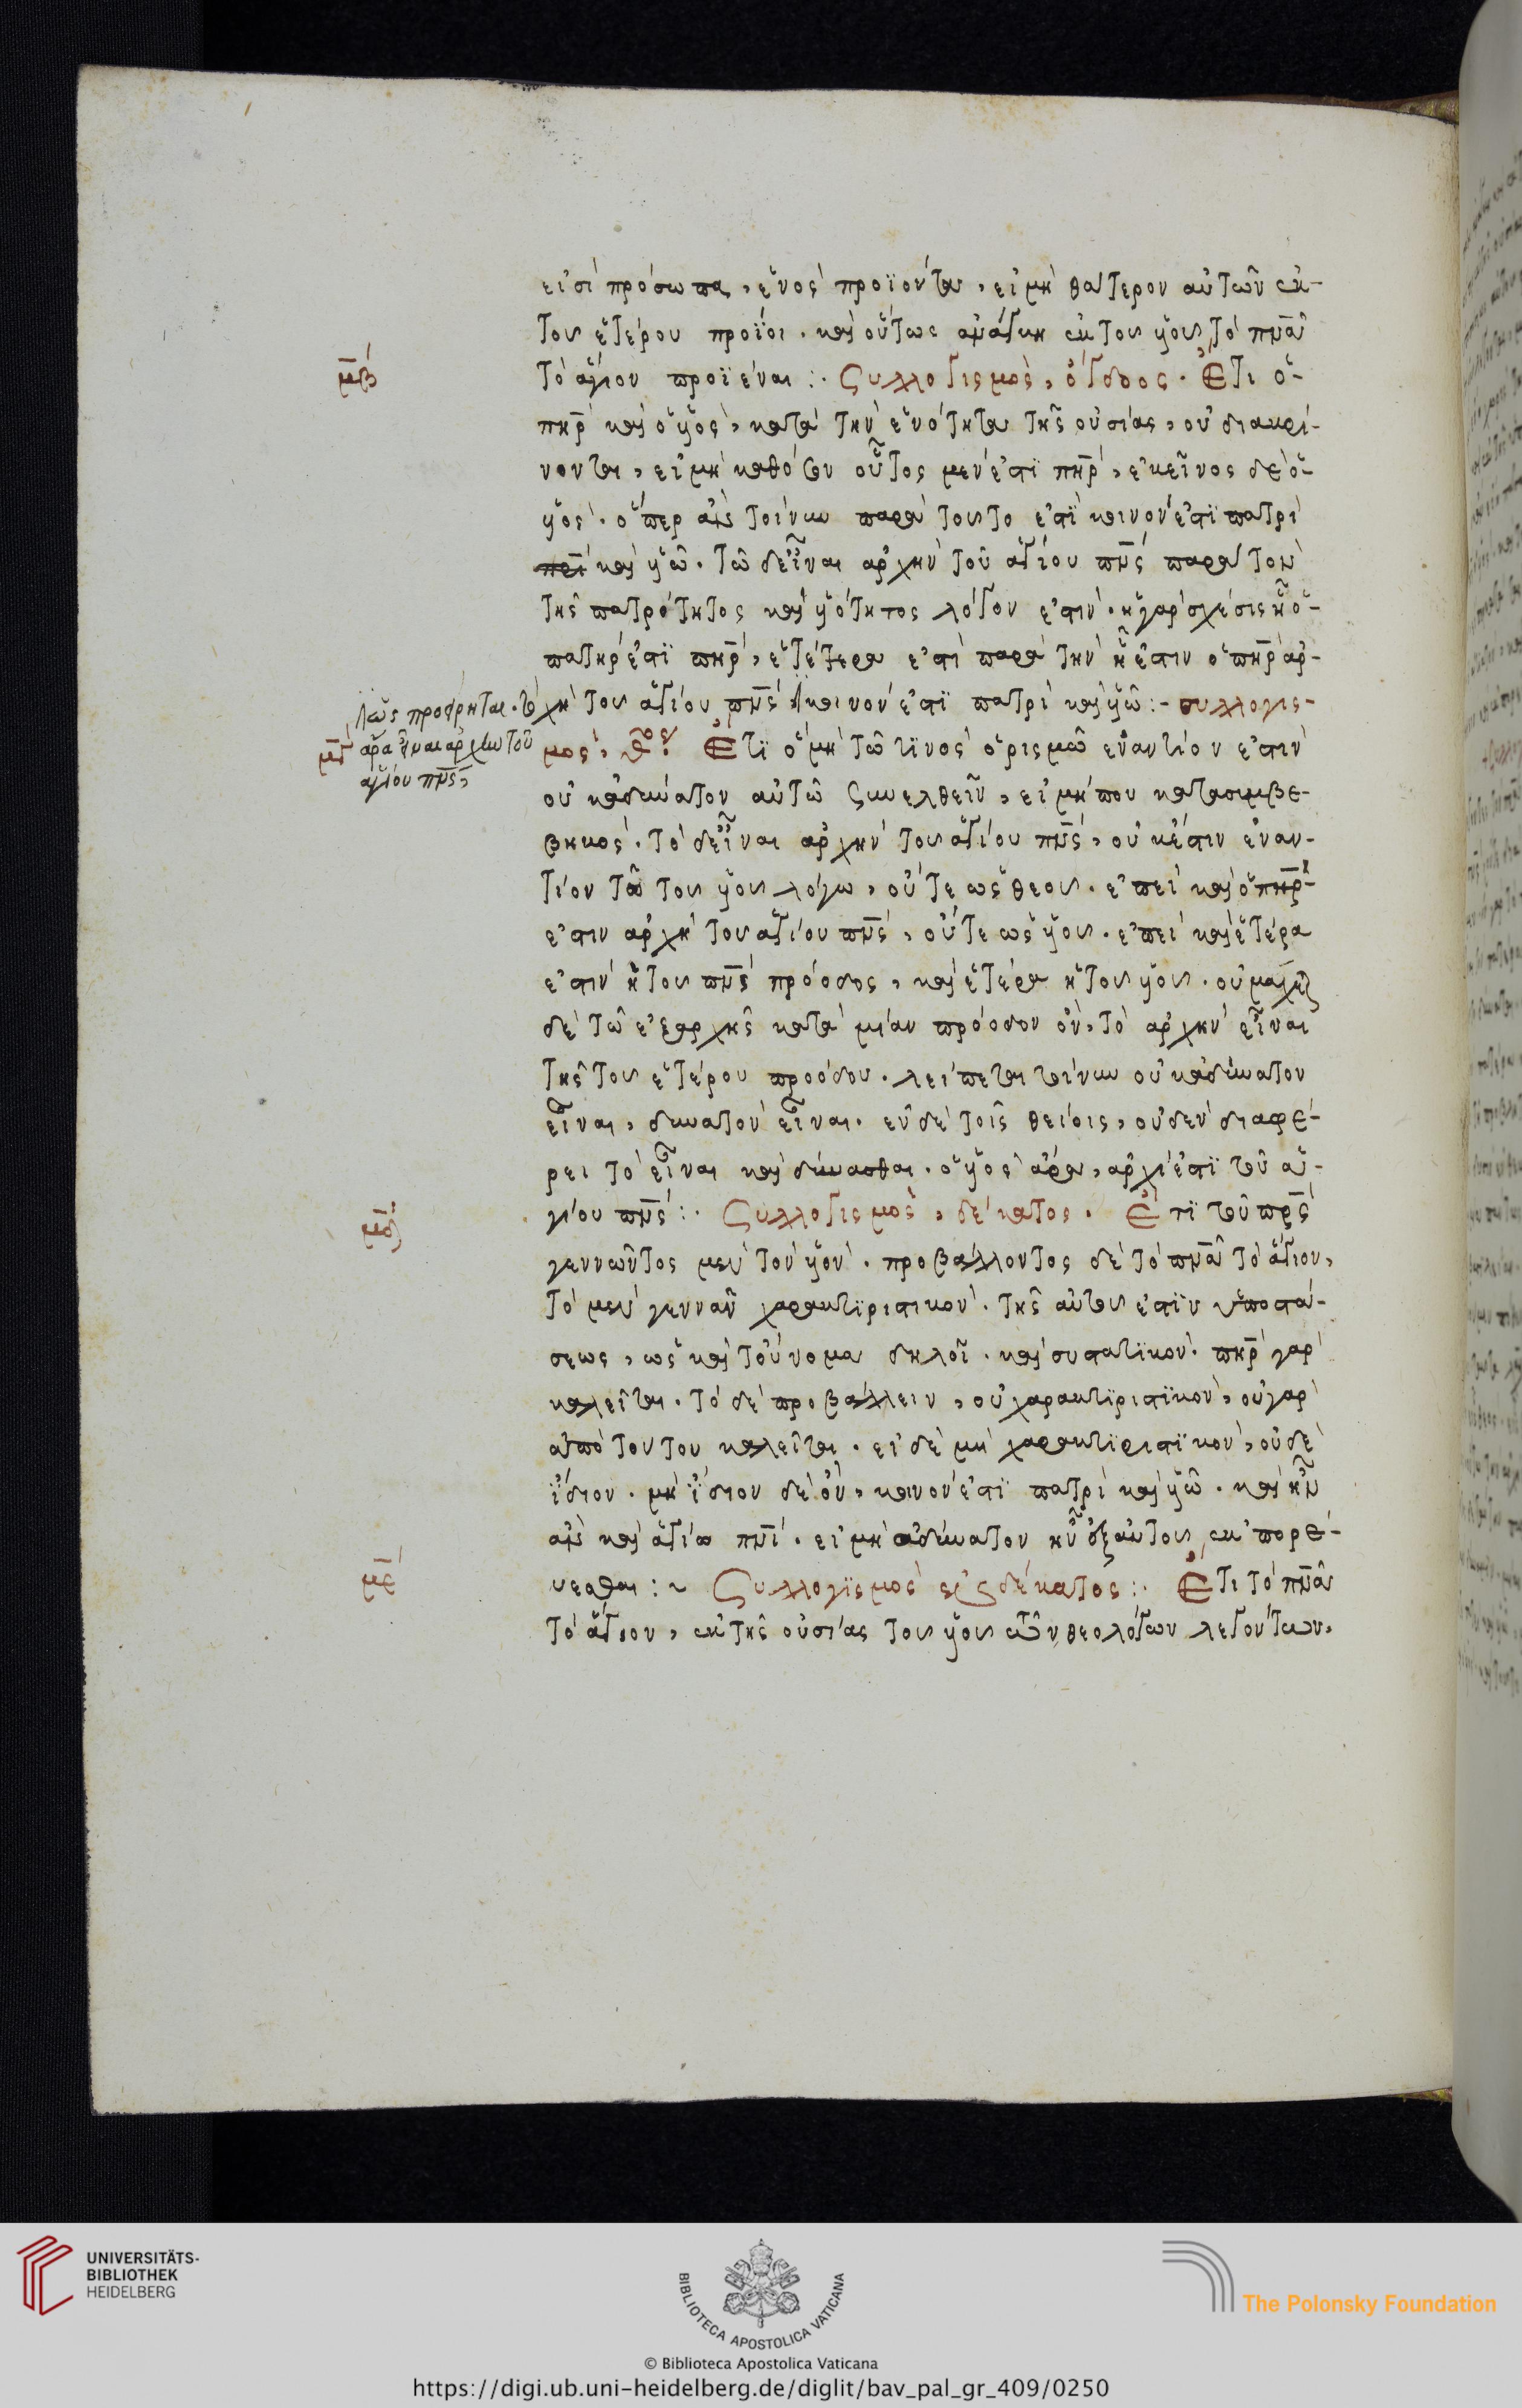 εἰσὶ πρόσωπα, ἑνὸς προϊόντα, εἰ μὴ θάτερον αὐτῶν ἐκ-
τοῦ ἑτέρου προΐοι. καὶ οὕτως ἀνάγκη ἐκ τοῦ υἱοῦ, τὸ πνα
μβ
τὸ ἅγιον προϊέναι :. Συλλογισμὸς, ὄγδοος. Ἔτι ὁ-
πηρ καὶ ὁ υἱὸς, κατὰ τὴν ἑνότητα τῆς οὐσίας, οὐ διακρί-
νονται, εἰ μὴ καθόσον οὗτος μὲν ἐστὶ πηρ, ἐκεῖνος δὲ ὁ
υἱός. ὅπερ ἂν τοίνυν παρὰ τοῦτο ἐστὶ κοινὸν ἐστὶ πατρὶ
καὶ υἱῶ. τῶ δὲ εἶναι ἀρχὴν τοῦ ἁγίου πνς παρὰ τὸν
τῆς πατρότητος καὶ υἱότητος λόγον ἐστίν. ἡ γὰρ σχέσις ἧ ὁ-
πατὴρ ἐστὶ πηρ, ἑτέτερα ἐστὶ παρὰ τὴν ἧ ἐστιν ὁ πηρ ἀρ-
χὴ τοῦ ἁγίου πνς κοινὸν ἐστὶ πατρὶ καὶ υἱῶ :- συλλογισ-
ὡς προείρηται. τὸ
ἄρα εἶναι ἀρχὴν τοῦ
ἁγίου πνς,
μγ
μὸς, θος. Ἔτι ὃ μὴ τῶ τινὸς ὁρισμῶ ἐναντίον ἐστὶν
οὐκ ἀδύνατον αὐτῶ συνελθεῖν, εἰ μήπου κατασυμβε-
βηκός. τὸ δὲ εἶναι ἀρχὴν τοῦ ἁγίου πνς, οὐκ ἔστιν ἐναν-
τίον τῶ τοῦ υἱοῦ λόγω, οὔτε ὡς θεοῦ. ἐπεὶ καὶ ὁ πηρ
ἐστιν ἀρχὴ τοῦ ἁγίου πνς, οὔτε ὡς υἱοῦ. ἐπεὶ καὶ ἑτέρα
ἐστὶν ἡ τοῦ πνς πρόοδος, καὶ ἑτέρα ἡ τοῦ υἱοῦ. οὐ μάχεται
δὲ τῶ ἐξαρχῆς κατὰ μίαν πρόοδον ὂν, τὸ ἀρχὴν εἶναι
τῆς τοῦ ἑτέρου προόδου. λείπεται τοίνυν οὐκ ἀδύνατον
εἶναι, δυνατὸν εἶναι. ἐν δὲ τοῖς θείοις, οὐδὲν διαφέ-
ρει τὸ εἶναι καὶ δύνασθαι. ὁ υἱὸς ἄρα, ἀρχὶ ἐστὶ τοῦ ἁ-
μδ
γίου πνς :. Συλλογισμὸς, δέκατος. Ἔτι τοῦ πρς
γεννῶντος μὲν τὸν υἱὸν. προβάλλοντος δὲ τὸ πνα τὸ ἅγιον,
τὸ μὲν γεννᾶν χαρακτϊριστικὸν. τῆς αὐτοῦ ἐστὶν ὑποστά-
σεως, ὡς καὶ τοὔνομα δηλοῖ. καὶ συστατϊκόν. πηρ γὰρ
καλεῖται. τὸ δὲ προβάλλειν, οὐ χαρακτϊριστϊκὸν, οὐ γὰρ
ἀπὸ τούτου καλεῖται. εἰ δὲ μὴ χαρακτϊριστϊκὸν, οὐδὲ
ἴδιον. μὴ ἴδιον δὲ ὂν, κοινὸν ἐστὶ πατρὶ καὶ υἱῶ. καὶ ἦν
ἂν καὶ ἁγίω πνι. εἰ μὴ ἀδύνατον ἦν ἐξ αὐτοῦ ἐκπορε-
με
ύεσθαι :~ Συλλογϊσμὸς εἱςδέκατος :. Ἔτι τὸ πνα
τὸ ἅγιον, ἐκ τῆς οὐσίας τοῦ υἱοῦ τῶν θεολόγων λεγόντων,
UNIVERSITÄTS-
BIBLIOTHEK
HEIDELBERG
BIBLIOTECA APOSTOLICA VATICANA
The Polonsky Foundation
© Biblioteca Apostolica Vaticana
https://digi.ub.uni-heidelberg.de/diglit/bav_pal_gr_409/0250